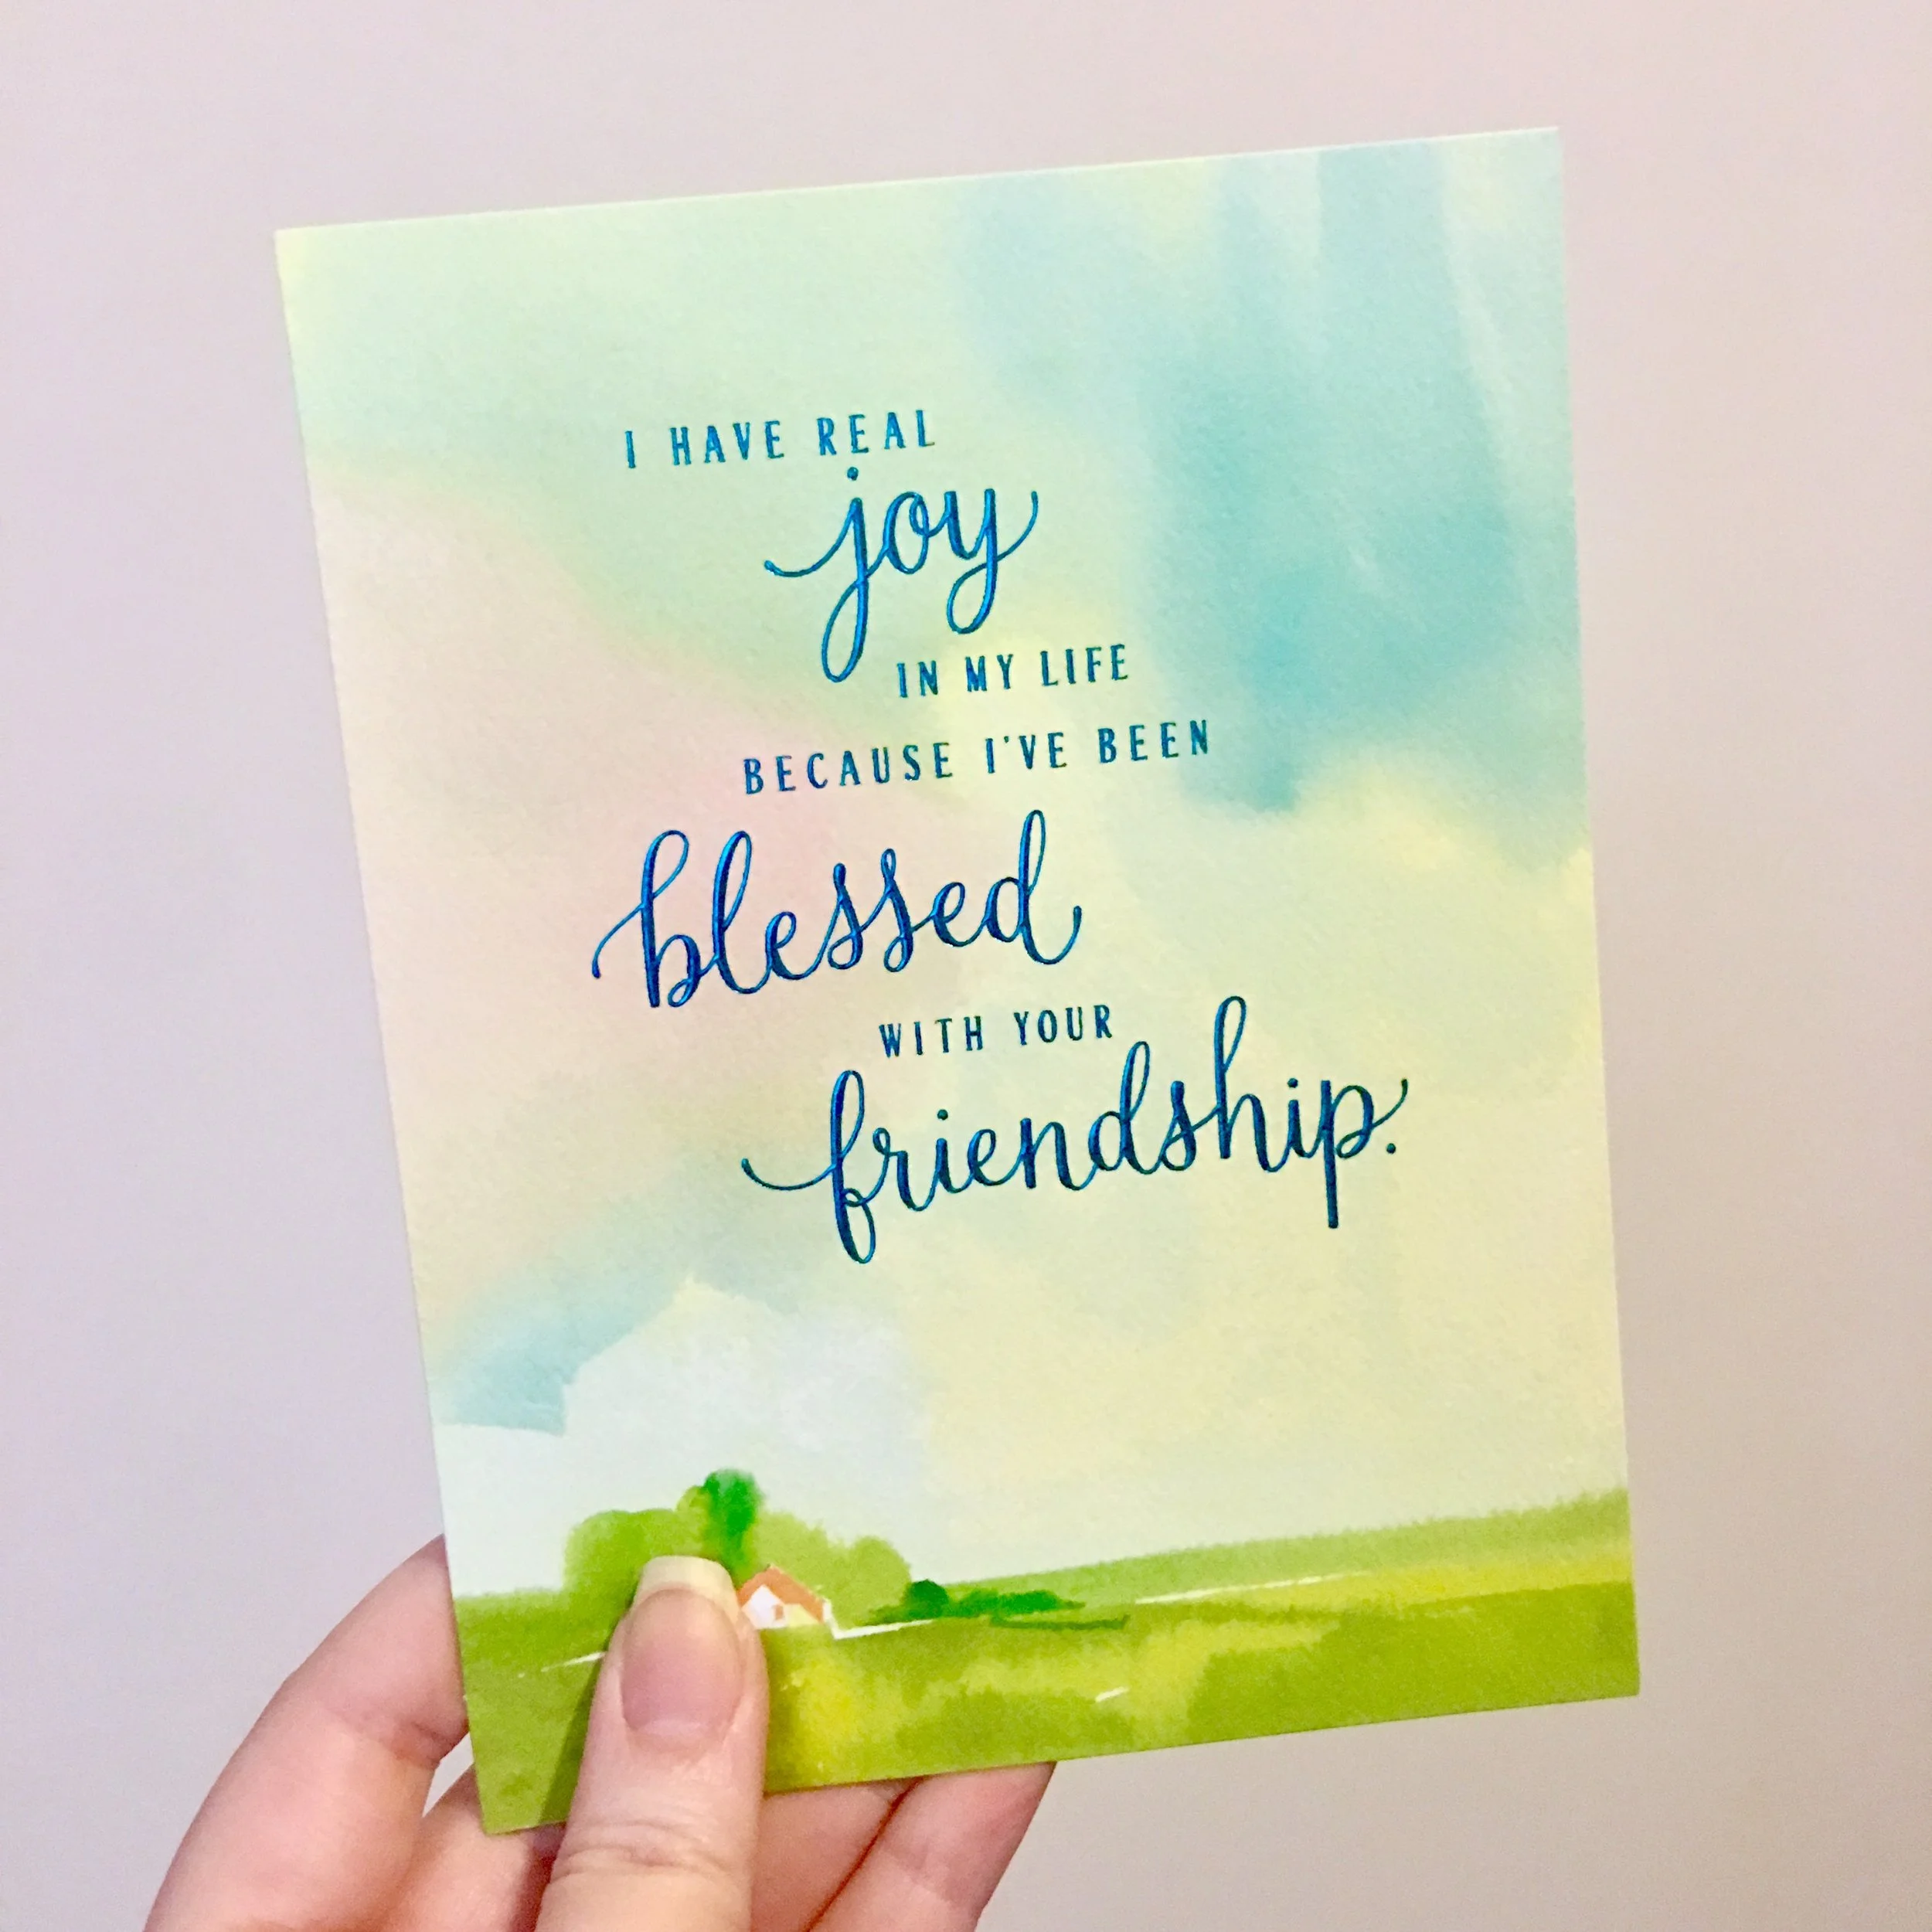 I HAVE REAL
joy
IN MY LIFE
BECAUSE I'VE BEEN
blessed
WITH YOUR
friendship.